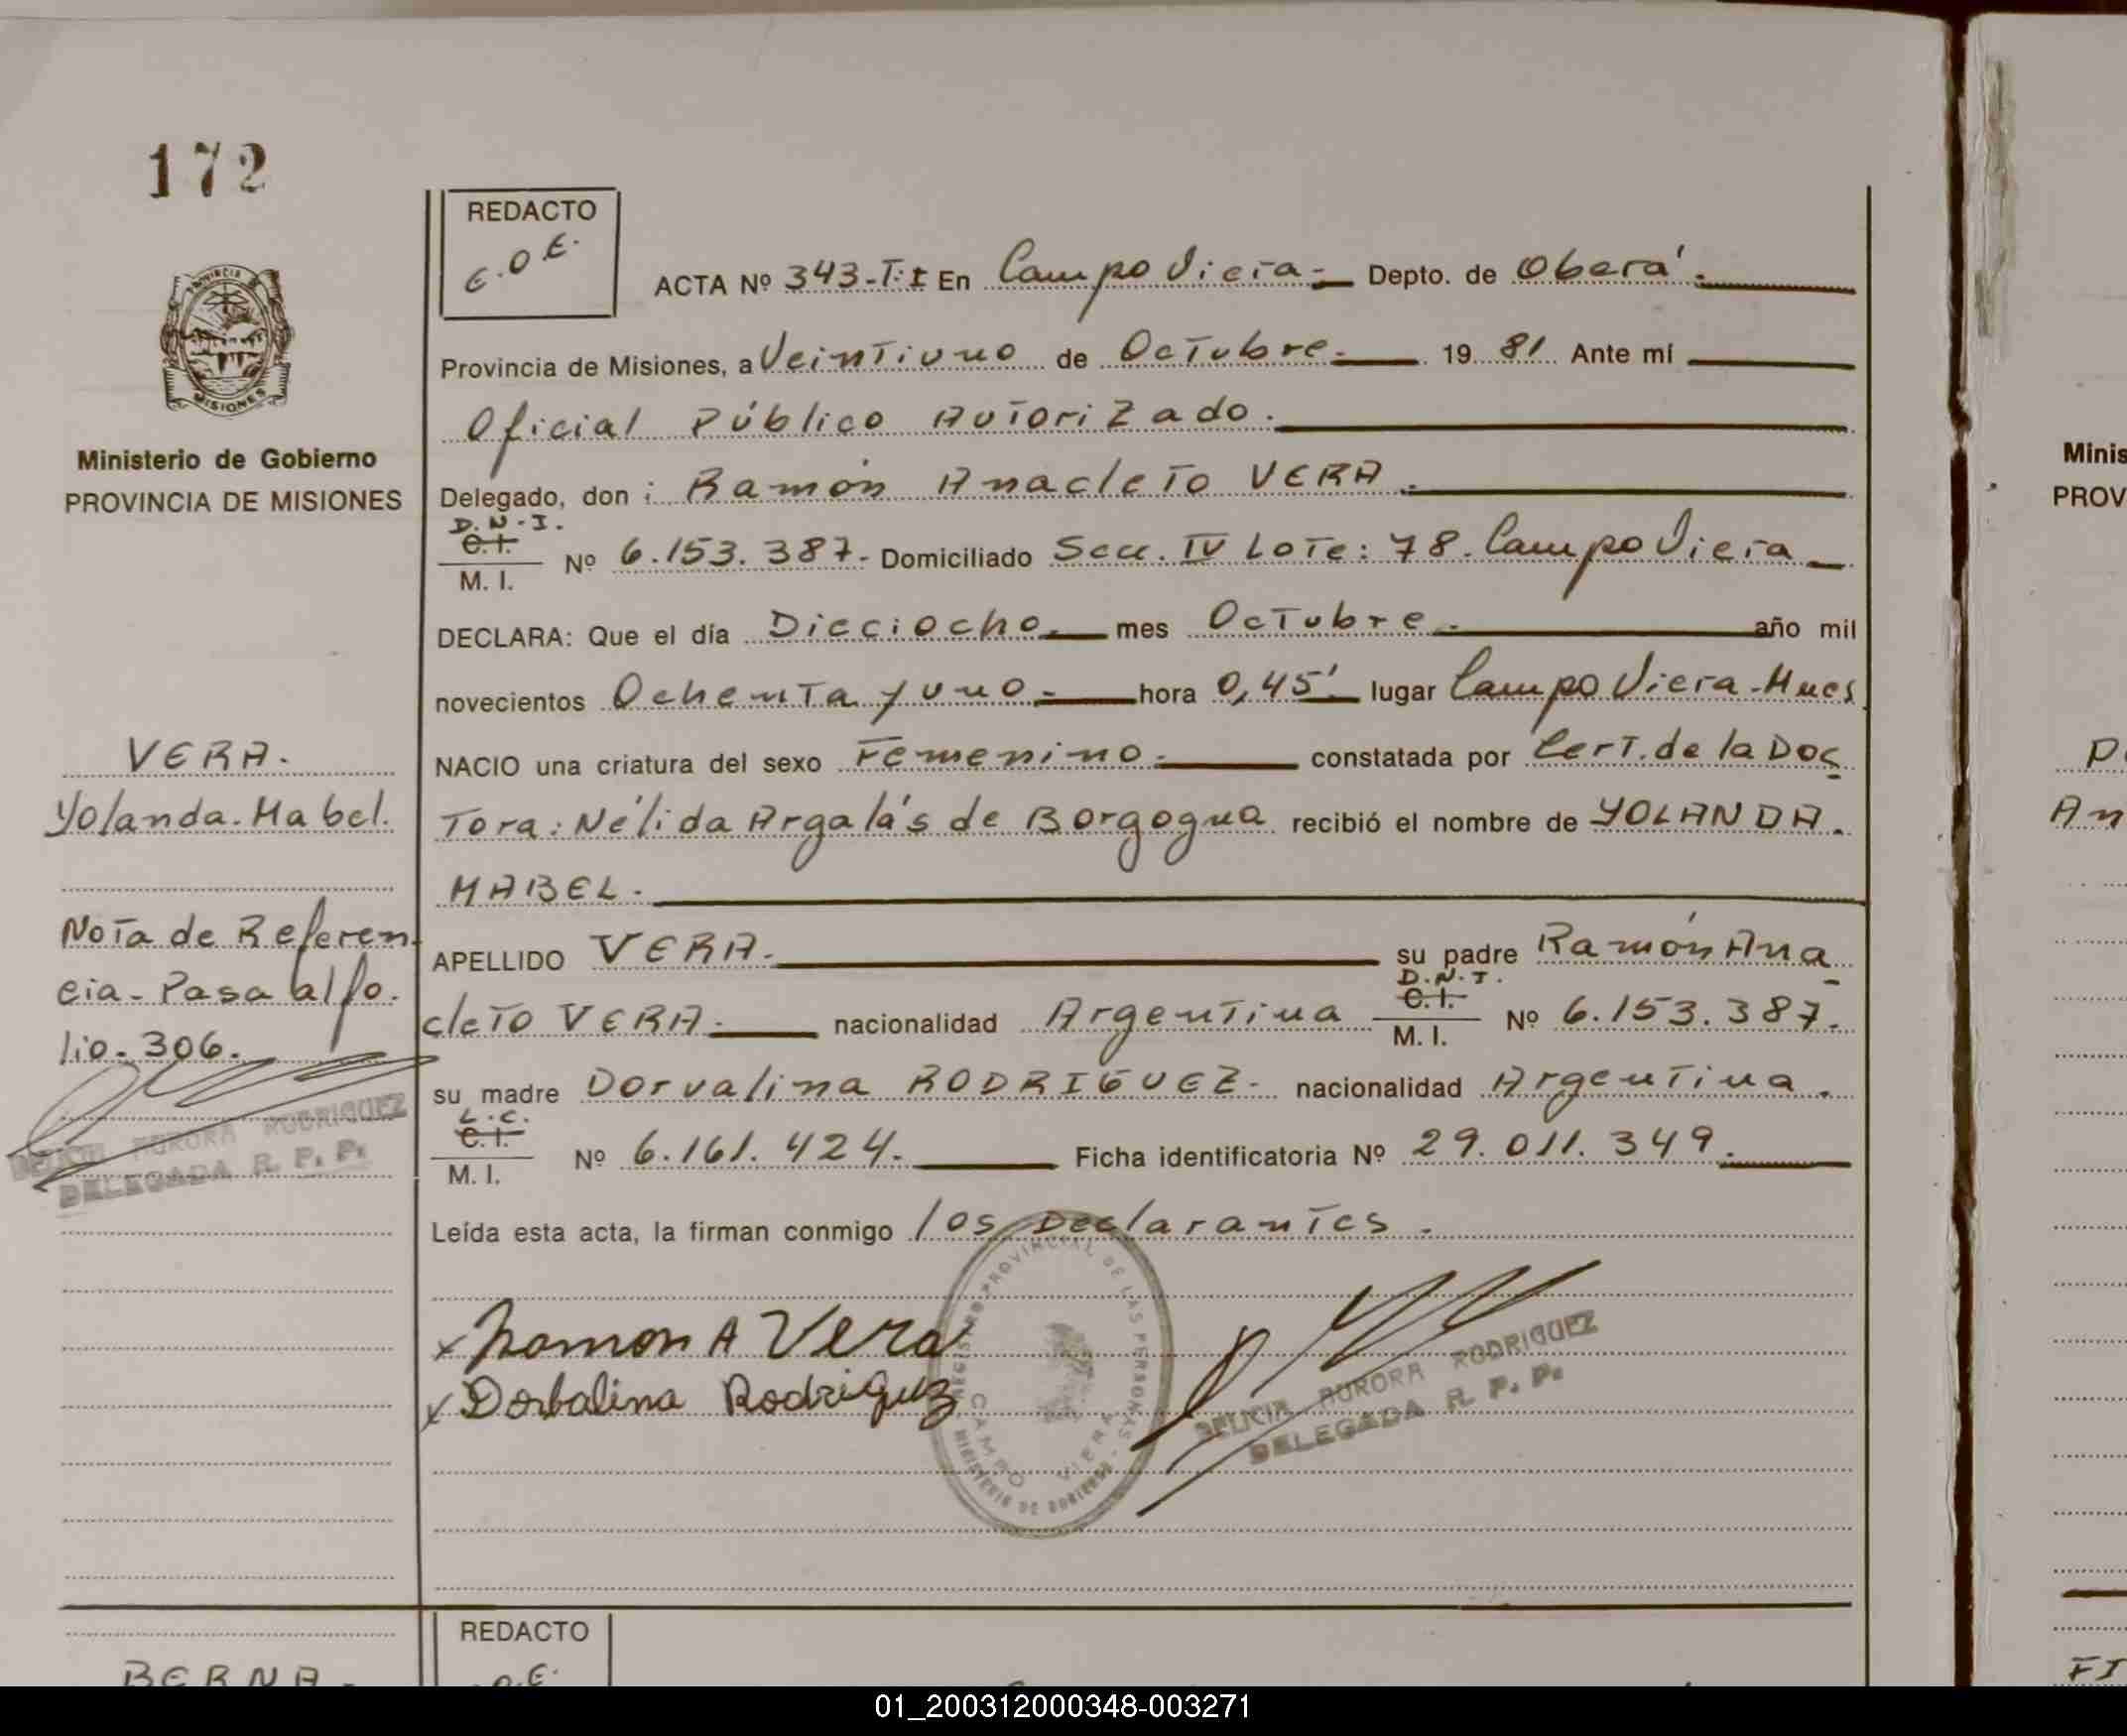 172
REDACTO
G.O.E.
ACTA Nº 343-T:I En Campo Viera.- Depto. de Oberá.
Provincia de Misiones, a Veintiuno de Octubre. 19 81 Ante mí
Oficial Público Autorizado.
Delegado, don : Ramón Anacleto VERA.
D.N.I.
C.I.
M. I. Nº 6.153.387.- Domiciliado Secc. IV Lote: 78. Campo Viera
DECLARA: Que el día Dieciocho. mes Octubre. año mil
novecientos Ochenta y uno.- hora 0,45'. lugar Campo Viera-Mnes
NACIO una criatura del sexo Femenino. constatada por Cert. de la Doc
tora: Nélida Argalás de Borgogna recibió el nombre de YOLANDA.
MABEL.
APELLIDO VERA. su padre Ramón Ana
cleto VERA. nacionalidad Argentina D.N.I. C.I. M. I. Nº 6.153.387.
su madre Dorvalina RODRIGUEZ- nacionalidad Argentina.
L.C.
C.I.
M. I. Nº 6.161.424. Ficha identificatoria Nº 29.011.349.
Leída esta acta, la firman conmigo los Declarantes.
x Ramon A Vera
x Dorbalina Rodriguez
REGISTRO PROVINCIAL DE LAS PERSONAS
CAMPO VIERA
MINISTERIO DE GOBIERNO
DELICIA AURORA RODRIGUEZ
DELEGADA R. P. P.
PROVINCIA
MISIONES
Ministerio de Gobierno
PROVINCIA DE MISIONES
VERA.
Yolanda. Mabel.
Nota de Referen
cia- Pasa al fo.
lio. 306.
DELICIA AURORA RODRIGUEZ
DELEGADA R. P. P.
BERNA
REDACTO
O.E.
Minis
PROV
An
FI
01_200312000348-003271